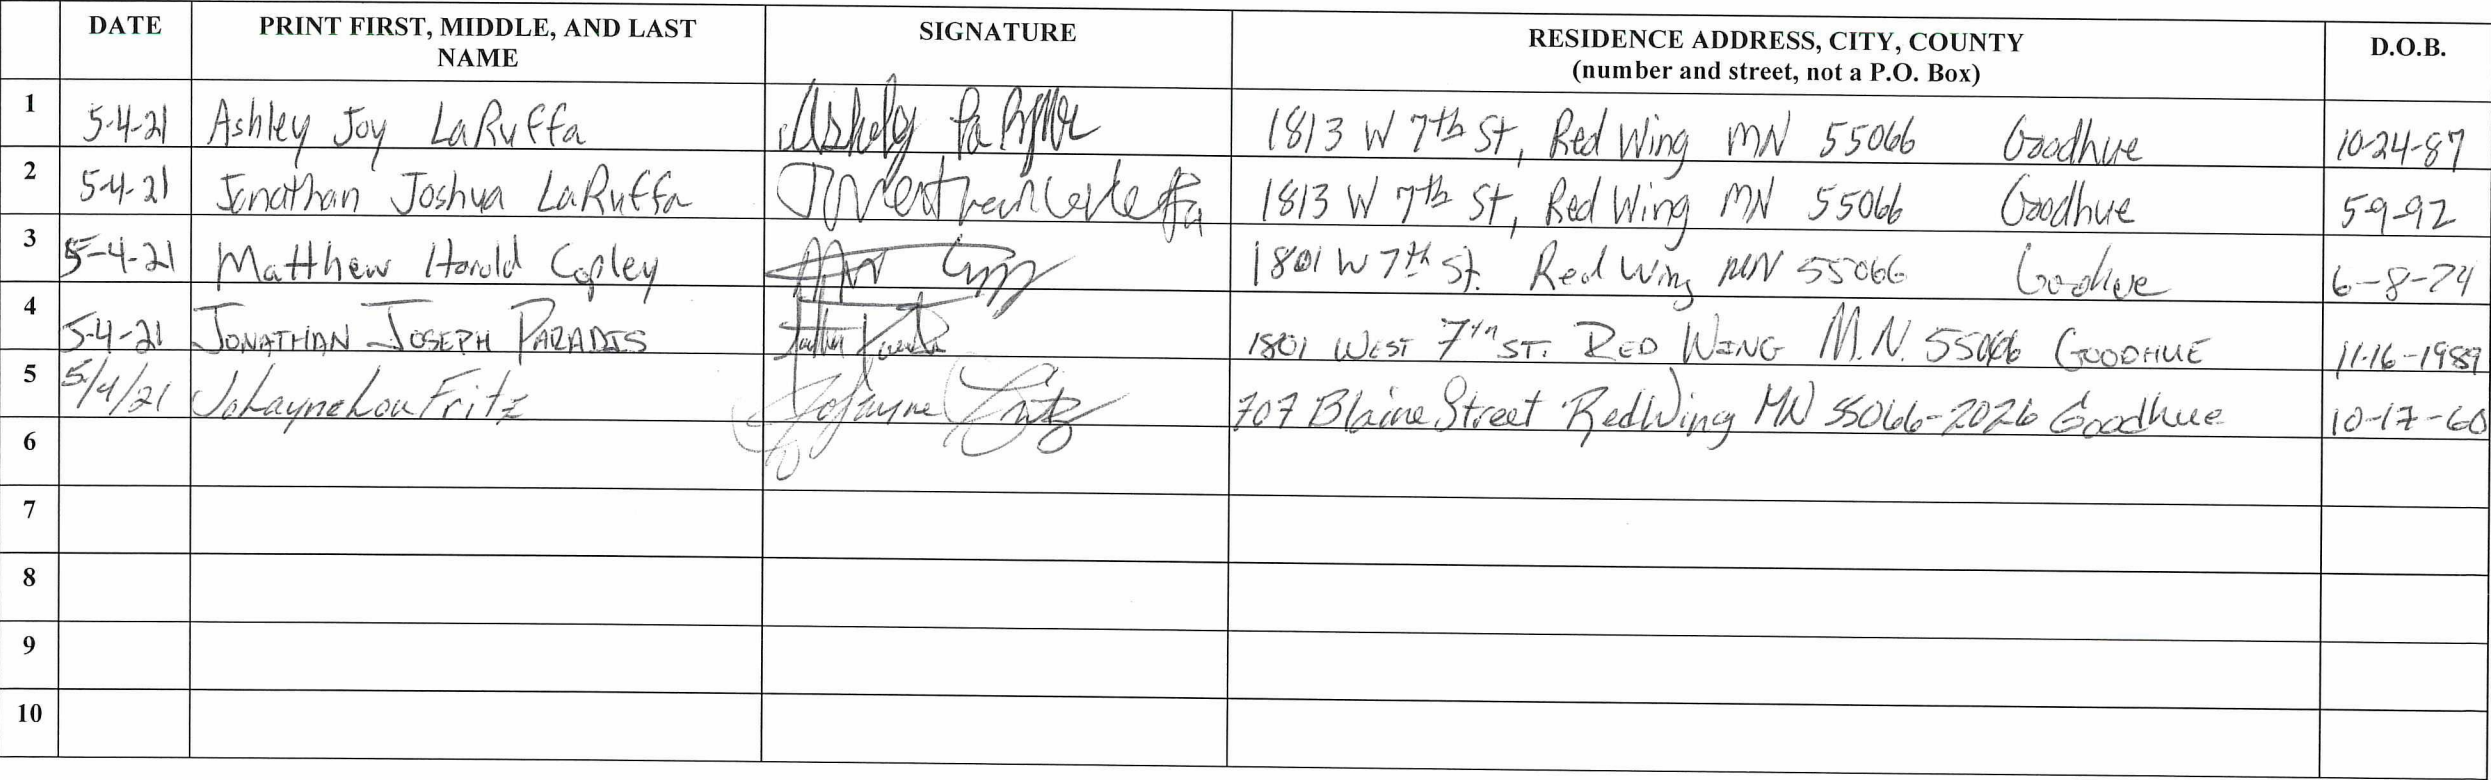 DATE PRINT FIRST, MIDDLE, AND LAST NAME SIGNATURE RESIDENCE ADDRESS, CITY, COUNTY (number and street, not a P.O. Box) D.O.B.
1 5-4-21 Ashley Joy LaRuffa 1813 W 7th St, Red Wing MN 55066 Goodhue 10-24-87
2 5-4-21 Jonathan Joshua LaRuffa 1813 W 7th St, Red Wing MN 55066 Goodhue 5-9-92
3 5-4-21 Matthew Harold Copley 1801 W 7th St. Red Wing MN 55066 Goodhue 6-8-74
4 5-4-21 JONATHAN JOSEPH PARADIS 1801 WEST 7TH ST. RED WING M.N. 55066 GOODHUE 11-16-1989
5 5/4/21 Lou Fritz JoJayne Fritz 707 Blaine Street RedWing MN 55066-2026 Goodhue 10-17-60
6
7
8
9
10